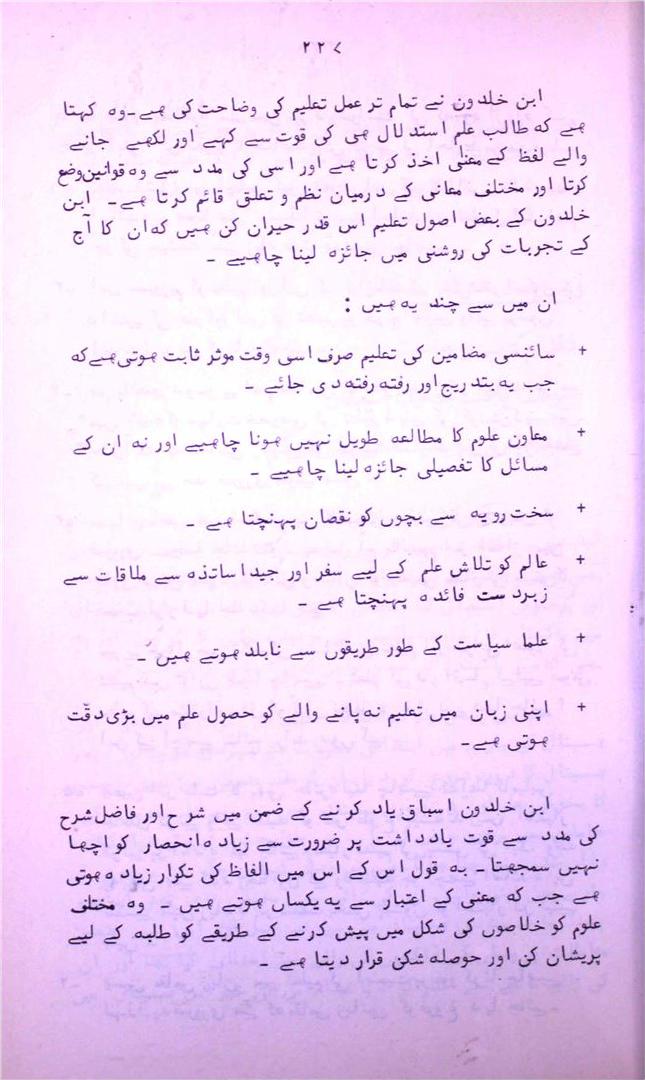 ۲۲۷
ابن خلدون نے تمام تر عمل تعلیم کی وضاحت کی ہے۔ وہ کہتا
ہے کہ طالب علم استدلال ہی کی قوت سے کہے اور لکھے جانے
والے لفظ کے معنٰی اخذ کرتا ہے اور اسی کی مدد سے وہ قوانین وضع
کرتا اور مختلف معانی کے درمیان نظم و تعلق قائم کرتا ہے۔ ابن
خلدون کے بعض اصول تعلیم اس قدر حیران کن ہیں کہ ان کا آج
کے تجربات کی روشنی میں جائزہ لینا چاہیے ۔
ان میں سے چند یہ ہیں :
+ سائنسی مضامین کی تعلیم صرف اسی وقت موثر ثابت ہوتی ہے کہ
جب یہ بتدریج اور رفتہ رفتہ دی جائے ۔
+ معاون علوم کا مطالعہ طویل نہیں ہونا چاہیے اور نہ ان کے
مسائل کا تفصیلی جائزہ لینا چاہیے ۔
+ سخت رویہ سے بچوں کو نقصان پہنچتا ہے ۔
+ عالم کو تلاش علم کے لیے سفر اور جید اساتذہ سے ملاقات سے
زبردست فائدہ پہنچتا ہے ۔
+ علما سیاست کے طور طریقوں سے نابلد ہوتے ہیں ۔
+ اپنی زبان میں تعلیم نہ پانے والے کو حصول علم میں بڑی دقّت
ہوتی ہے۔
ابن خلدون اسباق یاد کرنے کے ضمن میں شرح اور فاضل شرح
کی مدد سے قوت یادداشت پر ضرورت سے زیادہ انحصار کو اچھا
نہیں سمجھتا۔ بہ قول اس کے اس میں الفاظ کی تکرار زیادہ ہوتی
ہے جب کہ معنی کے اعتبار سے یہ یکساں ہوتے ہیں ۔ وہ مختلف
علوم کو خلاصوں کی شکل میں پیش کرنے کے طریقے کو طلبہ کے لیے
پریشان کن اور حوصلہ شکن قرار دیتا ہے ۔